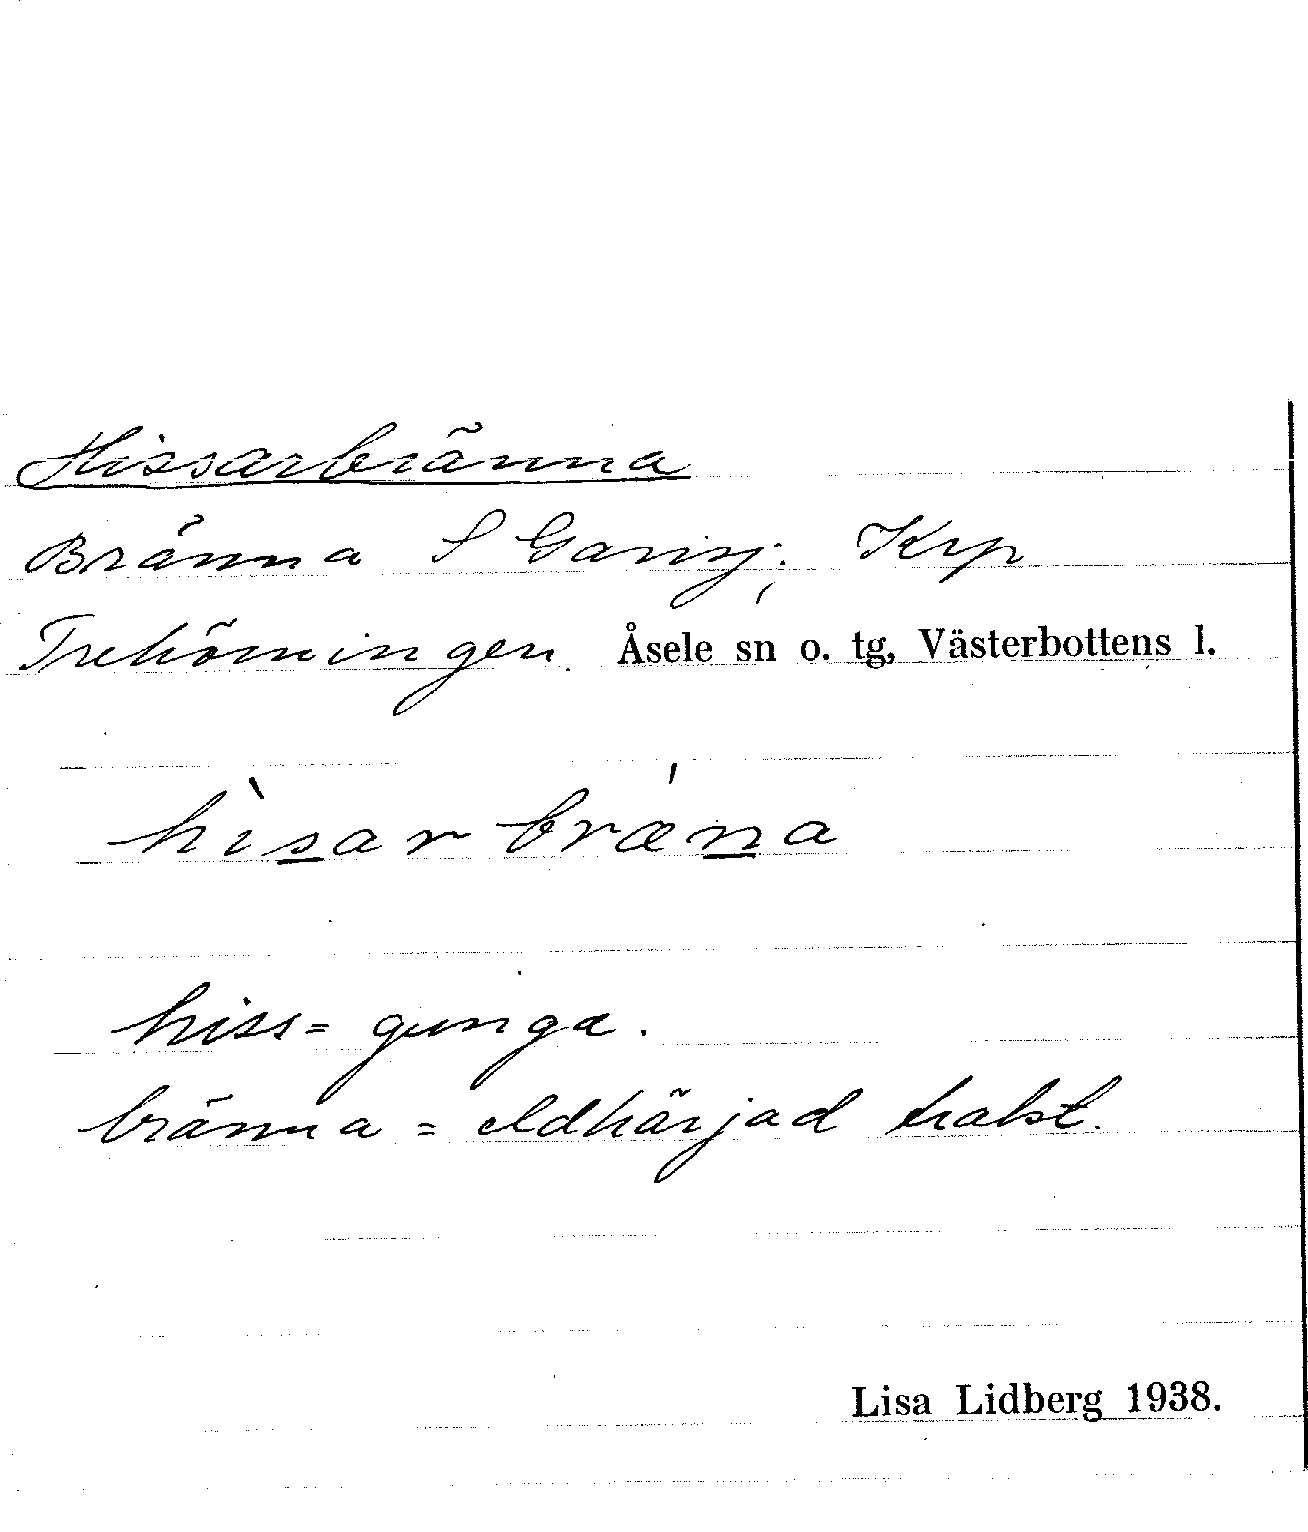 Hissarbränna
Bränna S Garsj; Krp
Trehörningen. Åsele sn o. tg, Västerbottens l.
hìsarbrǽna
hiss = gunga.
bränna = eldhärjad trakt.
Lisa Lidberg 1938.